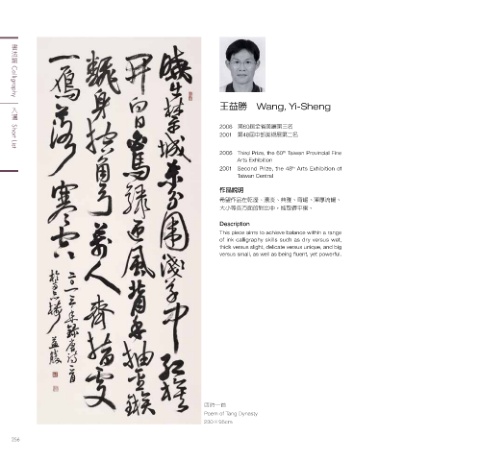 書法類 Calligraphy
入選 Short List
曉出禁城東分圍淺草中紅旗
開向日白馬驟迎風背手抽金鏃
翻身控角弓萬人齊指處
一雁落寒空
二〇一三年錄唐詩一首
益勝
王益勝 Wang, Yi-Sheng
2006 第60屆全省美展第三名
2001 第48屆中部美術展第二名
2006 Third Prize, the 60th Taiwan Provincial Fine
Arts Exhibition
2001 Second Prize, the 48th Arts Exhibition of
Taiwan Central
作品說明
Description
This piece aims to achieve balance within a range
of ink calligraphy skills such as dry versus wet,
thick versus slight, delicate versus unique, and big
versus small, as well as being fluent, yet powerful.
唐詩一首
Poem of Tang Dynasty